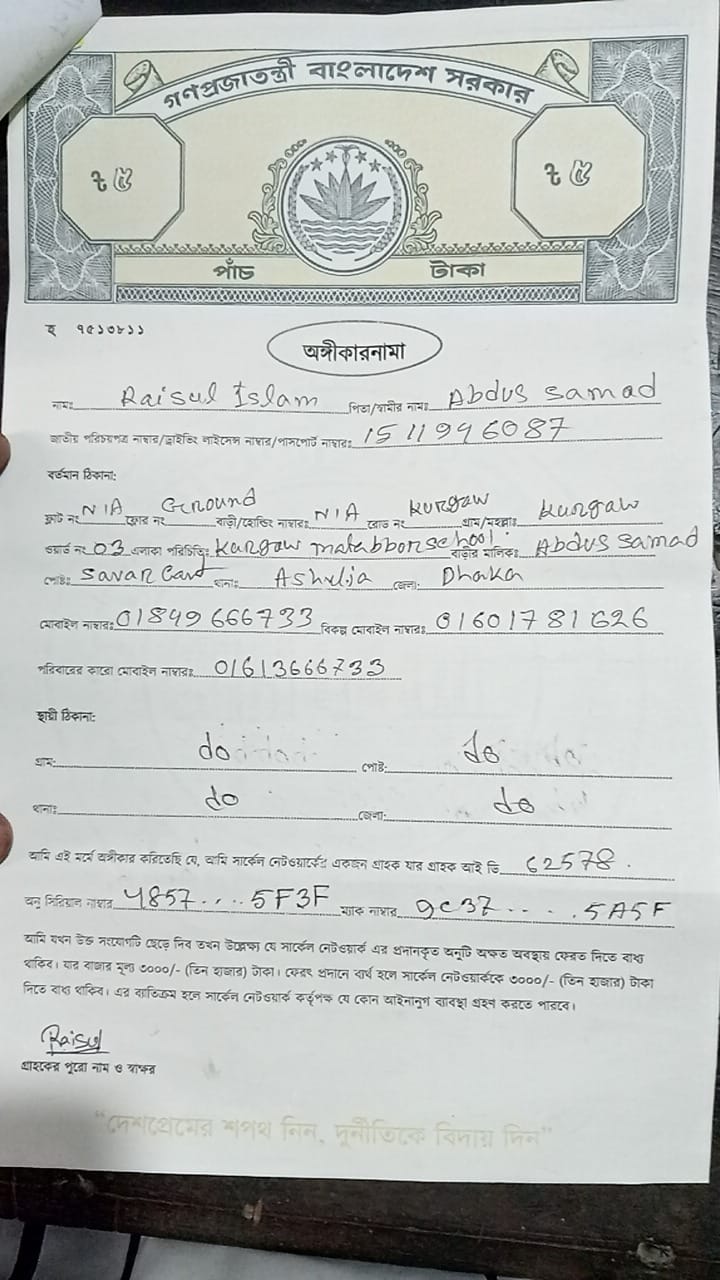 গণপ্রজাতন্ত্রী বাংলাদেশ সরকার
৳ ৫ ৳ ৫
পাঁচ টাকা
হ ৭৫১৩৮১১
অঙ্গীকারনামা
নামঃ Raisul Islam পিতা/স্বামীর নামঃ Abdus Samad
জাতীয় পরিচয়পত্র নাম্বার/ড্রাইভিং লাইসেন্স নাম্বার/পাসপোর্ট নাম্বারঃ 1511946087
বর্তমান ঠিকানা:
ফ্ল্যাট নং N/A ফ্লোর নং Ground বাড়ী/হোল্ডিং নাম্বারঃ N/A রোড নং Kurgaw গ্রাম/মহল্লাঃ Kurgaw
ওয়ার্ড নং 03 এলাকা পরিচিতিঃ Kurgaw matabbor school. বাড়ীর মালিকঃ Abdus Samad
পোষ্টঃ Savar Cant থানাঃ Ashulia জেলা: Dhaka
মোবাইল নাম্বারঃ 01849666733 বিকল্প মোবাইল নাম্বারঃ 01601781626
পরিবারের কারো মোবাইল নাম্বারঃ 01613666733
স্থায়ী ঠিকানা:
গ্রাম: do পোষ্ট: do
থানাঃ do জেলা: do
আমি এই মর্মে অঙ্গীকার করিতেছি যে, আমি সার্কেল নেটওয়ার্কের একজন গ্রাহক যার গ্রাহক আই ডি 62578.
অনু সিরিয়াল নাম্বার 4857....5F3F ম্যাক নাম্বার 9C37.....5A5F
আমি যখন উক্ত সংযোগটি ছেড়ে দিব তখন উল্লেক্ষ্য যে সার্কেল নেটওয়ার্ক এর প্রদানকৃত অনুটি অক্ষত অবস্থায় ফেরত দিতে বাধ্য
থাকিব। যার বাজার মূল্য ৩০০০/- (তিন হাজার) টাকা। ফেরৎ প্রদানে ব্যর্থ হলে সার্কেল নেটওয়ার্ককে ৩০০০/- (তিন হাজার) টাকা
দিতে বাধ্য থাকিব। এর ব্যতিক্রম হলে সার্কেল নেটওয়ার্ক কর্তৃপক্ষ যে কোন আইনানুগ ব্যাবস্থা গ্রহণ করতে পারবে।
Raisul
গ্রাহকের পুরো নাম ও স্বাক্ষর
"দেশপ্রেমের শপথ নিন, দুর্নীতিকে বিদায় দিন"